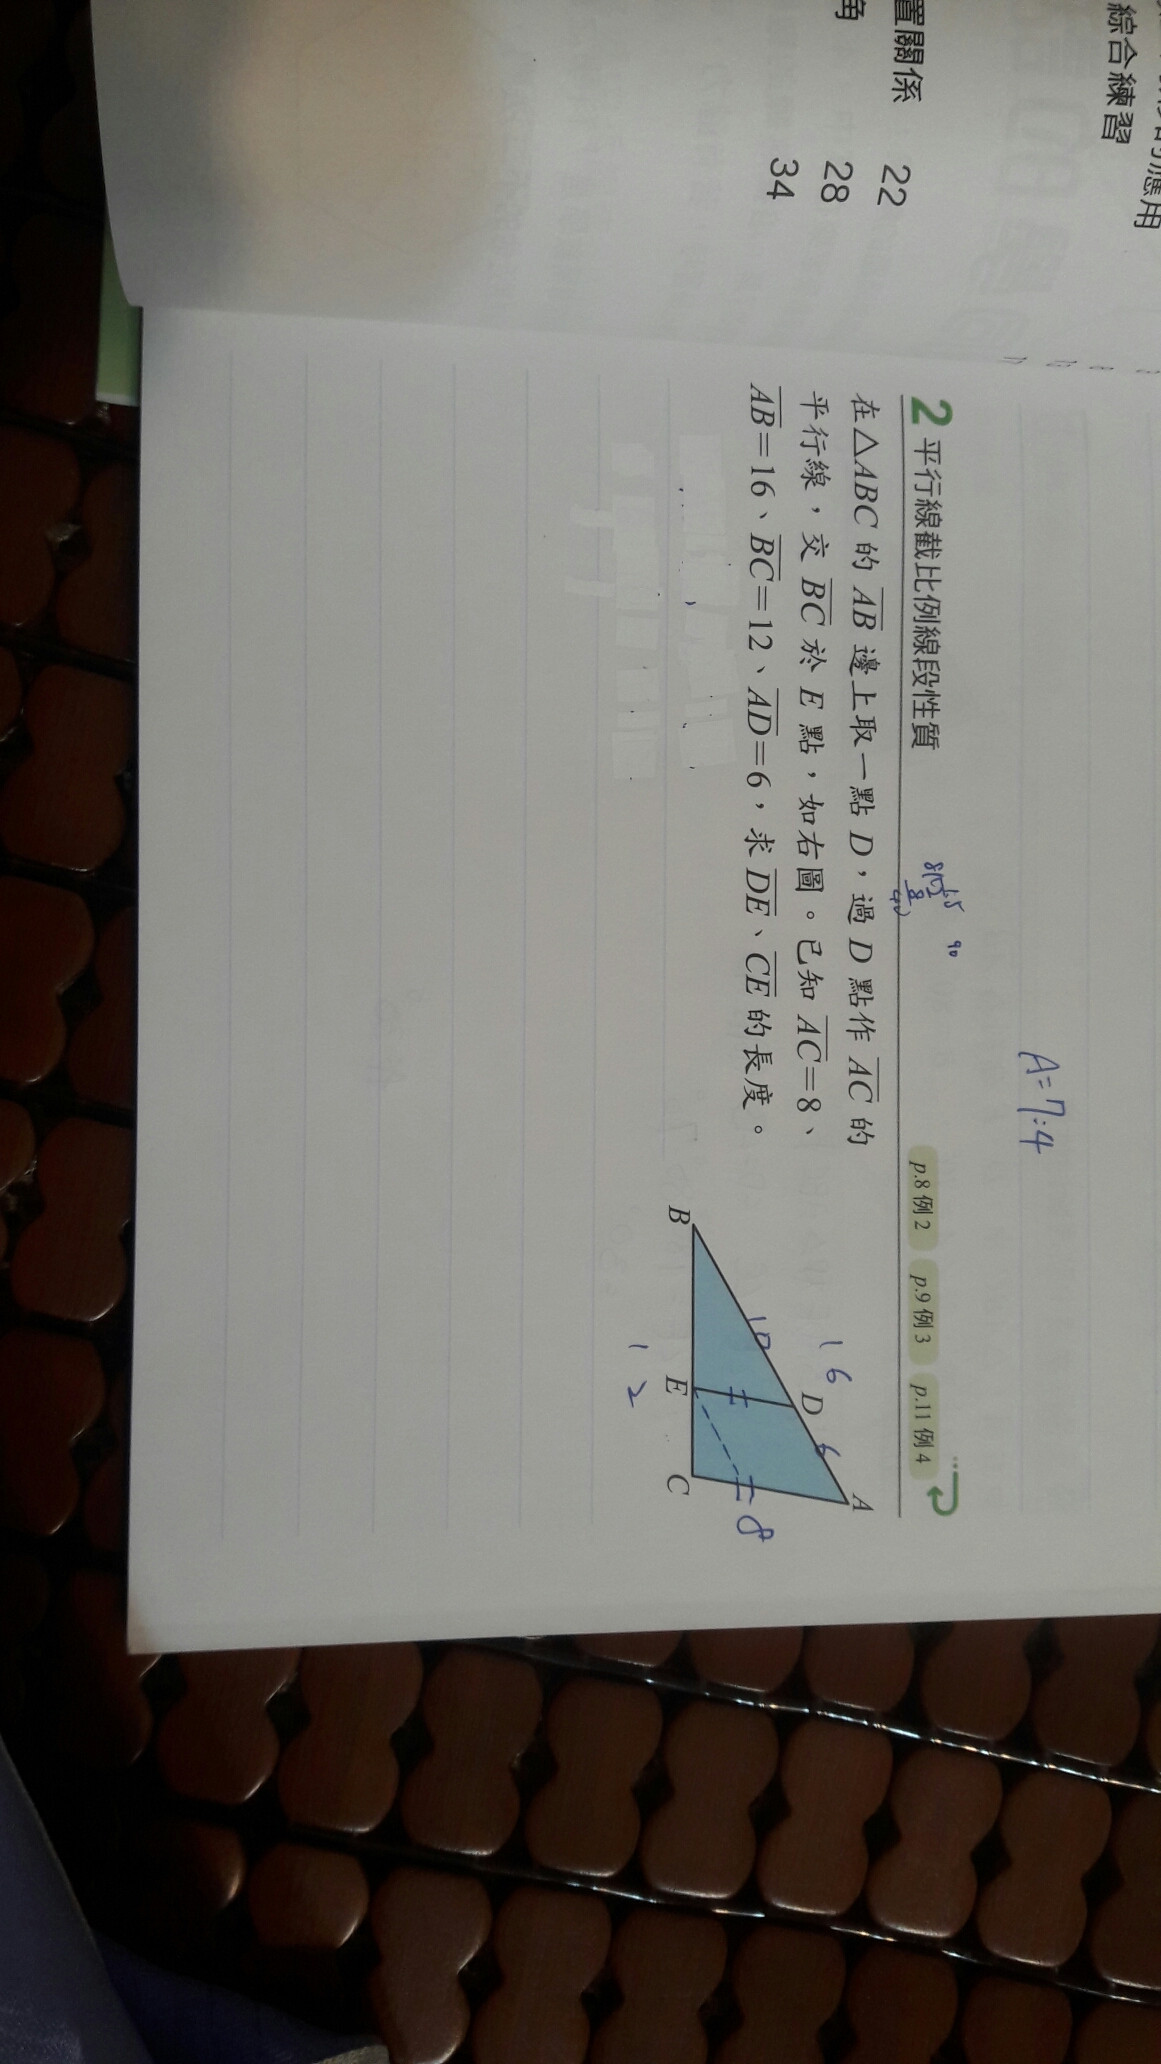 的應用
綜合練習
置關係 22
角 28
34
A=7:4
2 平行線截比例線段性質 p.8 例2 p.9 例3 p.11 例4
90
在△ABC 的 AB 邊上取一點 D，過 D 點作 AC 的
平行線，交 BC 於 E 點，如右圖。已知 AC=8、
AB=16、BC=12、AD=6，求 DE、CE 的長度。
A
16 D 6
10
8
B E C
12